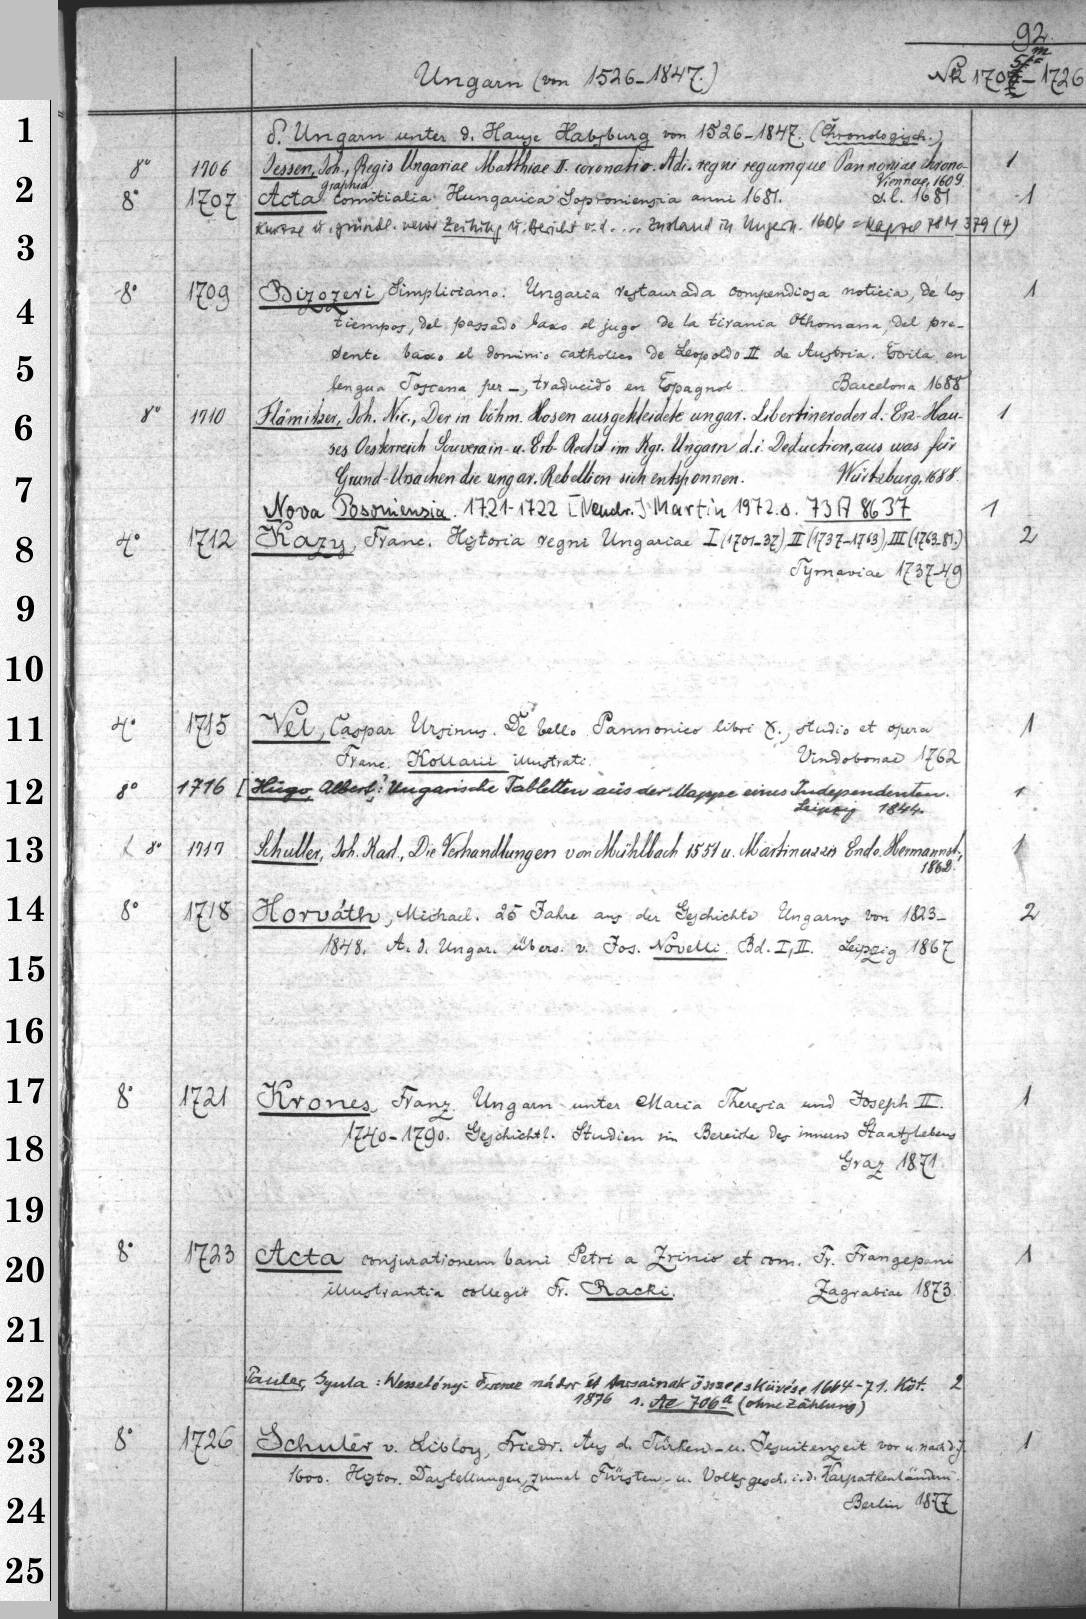 92.
Ungarn (von 1526-1847.) № 1707-1726
1
δ. Ungarn unter d. Hause Habsburg von 1526-1847. (Chronologisch.)
8° 1706 Jessen, Joh., Regis Ungariae Matthiae II. coronatio. Adi. regni regumque Pannoniae chrono- 1
graphia Viennae, 1609
2
8° 1707 Acta comitialia Hungarica Soproniensia anni 1681. s. l. 1681 1
3
Kurtze u. gründl. newe Zeitung u. Bericht v. d. .... Zustand in Ungern. 1606 = Kapsel 78 M 379 (4)
8° 1709 Bizozeri, Simpliciano: Ungaria restaurada compendiosa noticia, de los 1
4
tiempos, del passado baxo el jugo de la tirania Othomana, del pre-
5
sente baxo el dominio catholico de Leopoldo II de Austria. Escrita en
lengua Toscana per -, traducido en Espagnol. Barcelona 1688
6
8° 1710 Flämitzer, Joh. Nic., Der in böhm. Hosen ausgekleidete ungar. Libertiner oder d. Erz-Hau- 1
ses Oesterreich Souverain- u. Erb-Recht im Kgr. Ungarn d.i. Deduction, aus was für
7
Grund-Ursachen die ungar. Rebellion sich entsponnen. Würtzburg, 1688.
Nova Posoniensia. 1721-1722 [Neudr.] Martin 1972. s. 73 A 8637 1
8
4° 1712 Kazy, Franc. Historia regni Ungariae I (1701-37), II (1737-1763), III (1763-81.) 2
Tyrnaviae 1737-49
9
10
11
4° 1715 Vel, Caspar Ursinus. De bello Pannonico libri X., studio et opera 1
Franc. Kollarii illustrati. Vindobonae 1762
12
8° 1716 [Hugo, Albert: Ungarische Tabletten aus der Mappe eines Independenten. 1
Leipzig 1844.
13
8° 1717 Schuller, Joh. Karl., Die Verhandlungen von Mühlbach 1551 u. Martinuzzis Ende. Hermannst., 1
1862.
14
8° 1718 Horváth, Michael. 25 Jahre aus der Geschichte Ungarns von 1823- 2
15
1848. A. d. Ungar. übers. v. Jos. Novelli. Bd. I, II. Leipzig 1867
16
17
8° 1721 Krones, Franz. Ungarn unter Maria Theresia und Joseph II. 1
18
1740-1790. Geschichtl. Studien im Bereiche des innern Staatslebens
Graz 1871.
19
20
8° 1723 Acta conjurationem bani Petri a Zrinio et com. Fr. Frangepani 1
illustrantia collegit Fr. Racki. Zagrabiae 1873.
21
22
Pauler, Gyula: Wesselényi Ferenc nádor és társainak összeesküvése 1664-71. Köt. 2
1876 s. Az 706a (ohne Zählung)
23
8° 1726 Schuler v. Libloy, Friedr. Aus d. Türken- u. Jesuitenzeit vor u. nach d. J. 1
1600. Histor. Darstellungen, zumal Fürsten- u. Volksgesch. i. d. Karpathenländern.
24
Berlin 1877
25